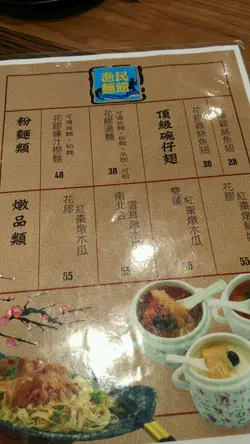 漁民
麵館
頂級碗仔翅
花膠雞絲魚翅
38
雞絲魚翅
28
粉麵類
可選粗麵、幼麵、米粉、河粉
花膠湯麵
38
可選粗麵、幼麵
花膠蠔汁撈麵
48
燉品類
紅棗燉木瓜
55
雪蓮
紅棗燉木瓜
55
雪耳燉木瓜
南北杏
55
紅棗燉木瓜
花膠
55